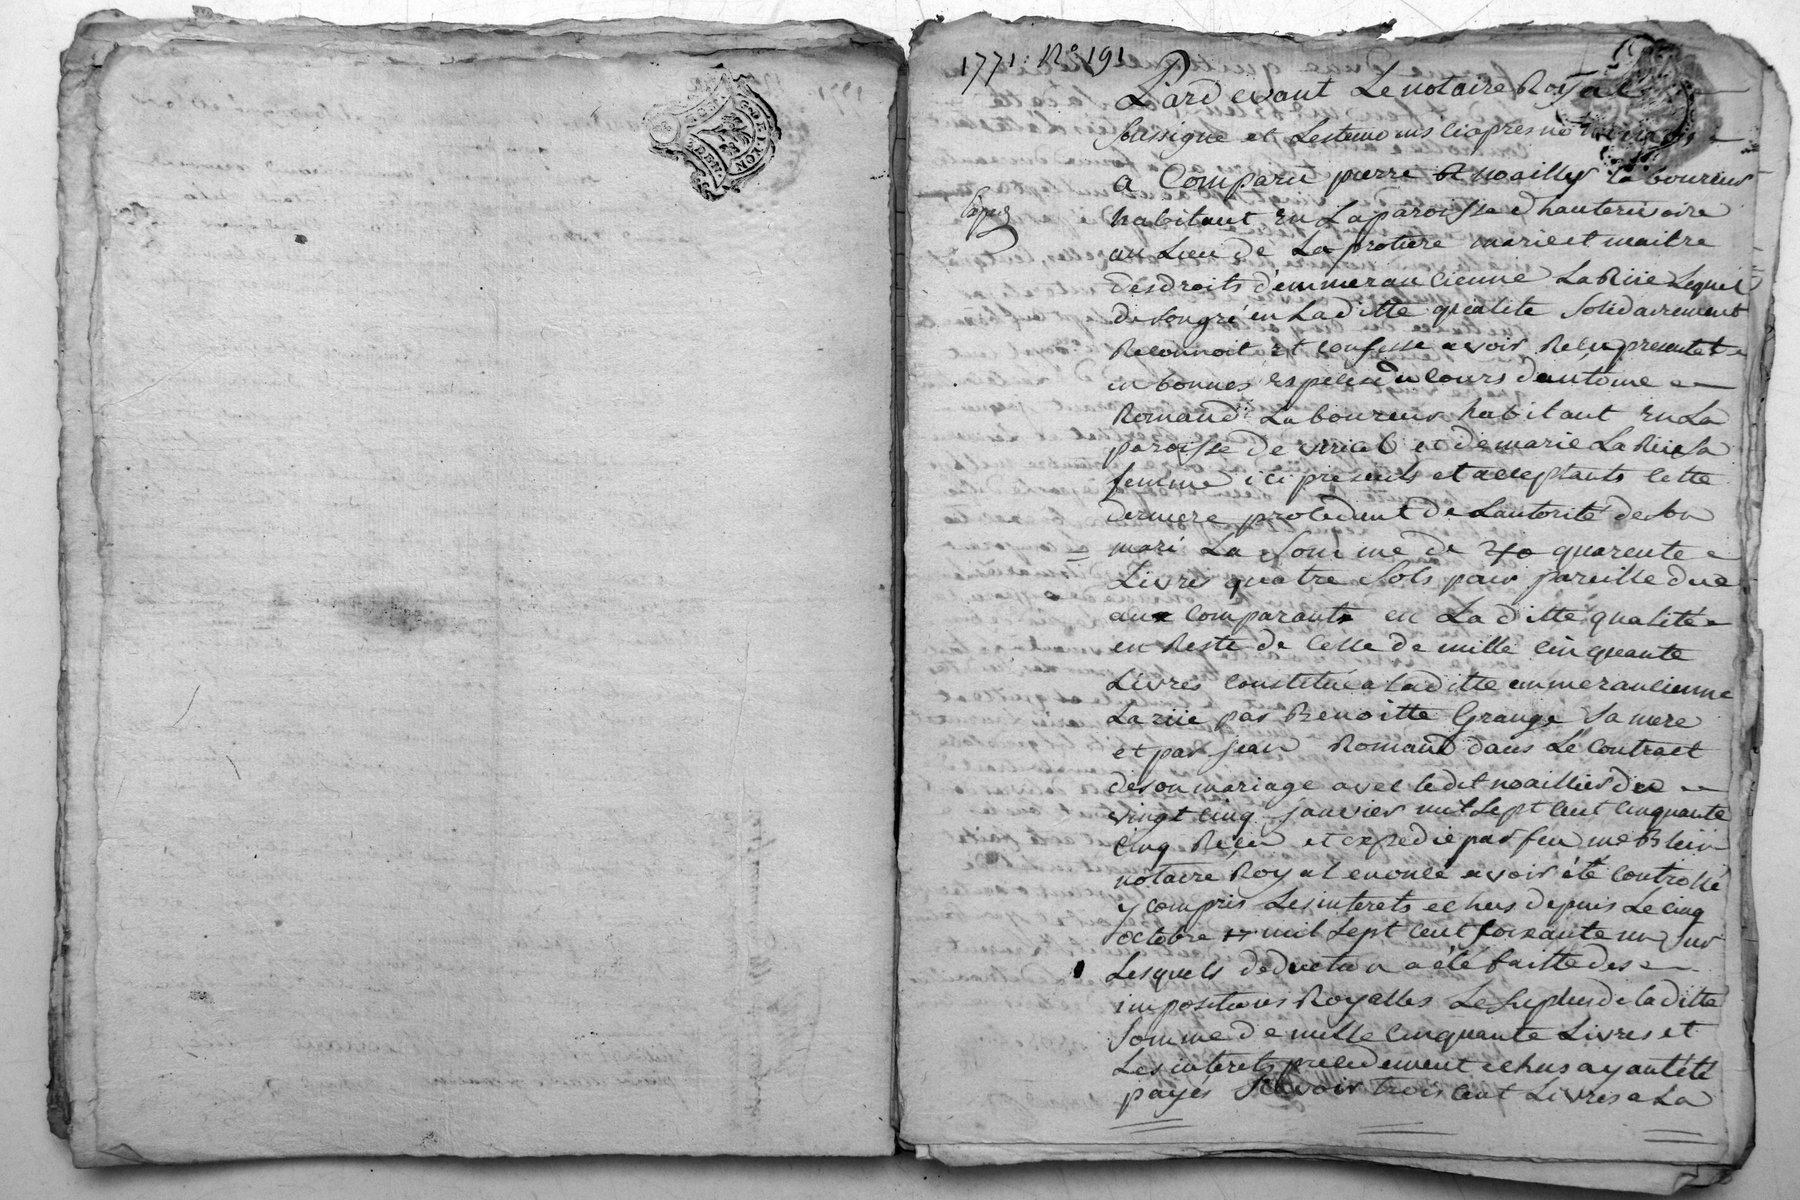 GEN. DE LYON
1771. N° 191
Pardevant Le notaire Royal
soussigné et Les temoins ci apres
a Comparu pierre noailly Laboureur
habitant en La paroisse d hauterivoire
au Lieu de La marié et maitre
des droits d'emmerancienne La Rüe Lequel
de son gré en La ditte qualité solidairement
Reconnoit et confesse avoir Reçu presentemt
en bonnes especes du cours d antoine
Romand Laboureur habitant en La
paroisse de viricel et de marie La Rüe sa
femme ici presents et acceptants cette
derniere procedant de L autorité de son
mari La somme de quarente
Livres quatre sols pour pareille due
aux comparants en La ditte qualité
en Reste de celle de mille cinquante
Livres constituée a la ditte emmerancienne
La rüe par Benoitte Grange sa mere
et par jean Romand dans Le contract
de son mariage avec le dit noaillier du
vingt cinq janvier mil sept cent cinquante
cinq Reçu et expedié par feu me Blein
notaire Royal enoncé avoir été controllé
y compris Les interets echus depuis Le cinq
octobre mil sept cent soixante un sur
Lesquels deduction a été faitte des
impositions Royalles Le surplus de la ditte
somme de mille cinquante Livres et
Les interets precedement echus ayant été
payés sçavoir trois cent Livres a La